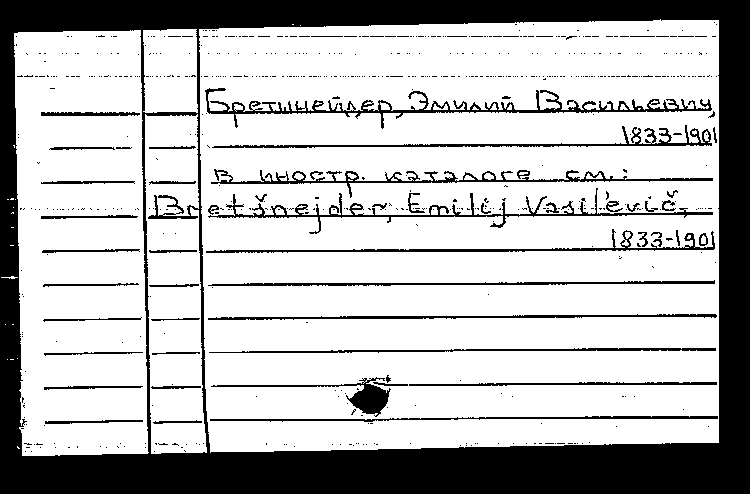 Бретшнейдер, Эмилий Васильевич,
1833-1901
в иностр. каталоге см.:
Bretšnejder, Emilij Vasil'evič,
1833-1901